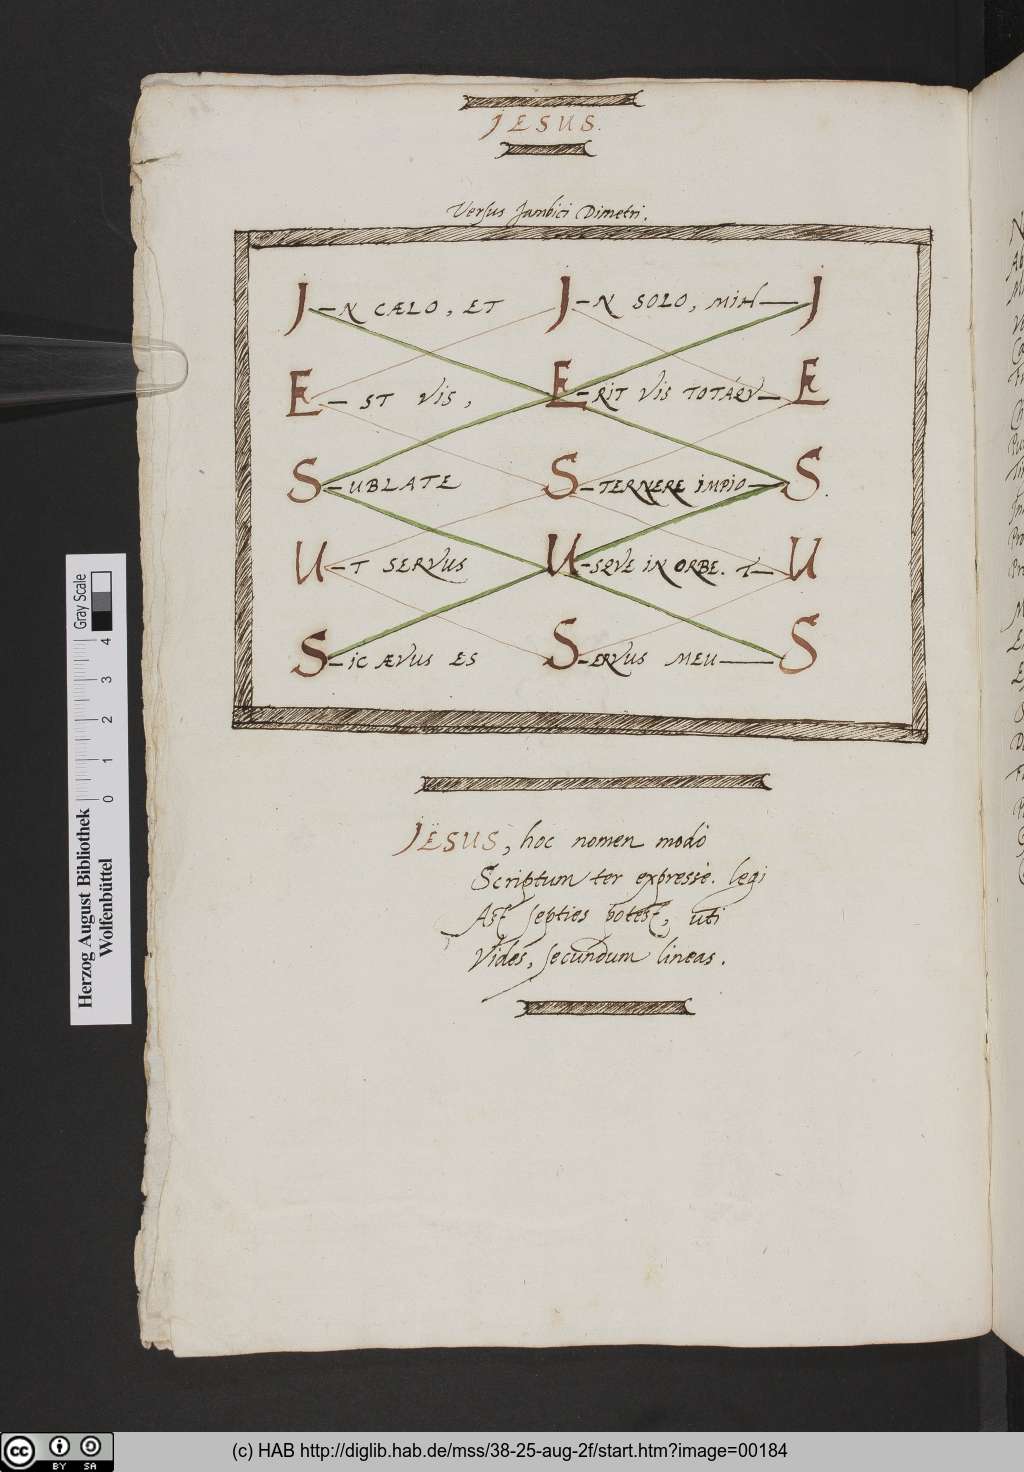 JESUS.
Versus Jambici Dimetri.
J-N CÆLO, ET J-N SOLO, MIH-J
E-ST VIS, E-RIT VIS TOTAQV-E
S-UBLATE S-TERNERE IMPIO-S.
U-T SERVUS U-SQVE IN ORBE. T-U
S-IC ÆVUS ES S-ERVUS MEU-S
JESUS, hoc nomen modò
Scriptum ter expressè. legi
Ast septies potest, uti
Vides, secundum lineas.
Gray Scale
0 1 2 3 4
Herzog August Bibliothek
Wolfenbüttel
cc BY SA
(c) HAB http://diglib.hab.de/mss/38-25-aug-2f/start.htm?image=00184